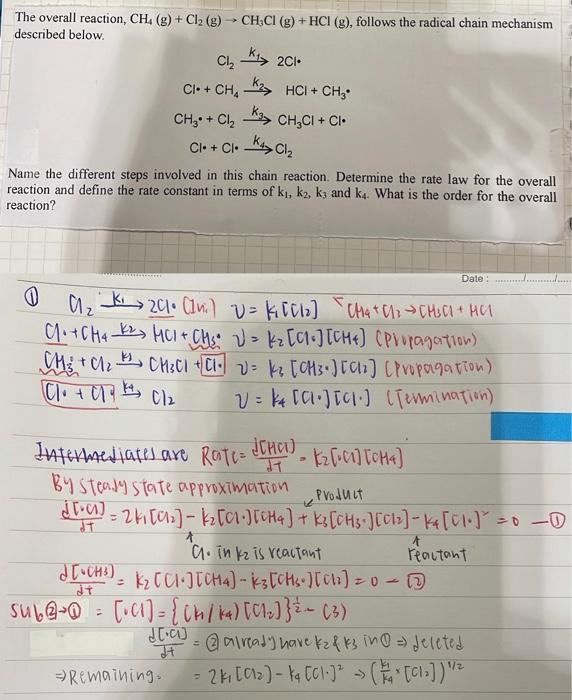 The overall reaction, CH₄ (g) + Cl₂ (g) → CH₃Cl (g) + HCl (g), follows the radical chain mechanism
described below.
Cl₂ —k₁→ 2Cl•
Cl• + CH₄ —k₂→ HCl + CH₃•
CH₃• + Cl₂ —k₃→ CH₃Cl + Cl•
Cl• + Cl• —k₄→ Cl₂
Name the different steps involved in this chain reaction. Determine the rate law for the overall
reaction and define the rate constant in terms of k₁, k₂, k₃ and k₄. What is the order for the overall
reaction?
Date :
① Cl₂ —k₁→ 2Cl• (Ini.) v = k₁[Cl₂] CH₄+Cl₂→CH₃Cl + HCl
Cl•+CH₄ —k₂→ HCl + CH₃• v = k₂[Cl•][CH₄] (Propagation)
CH₃•+Cl₂ —k₃→ CH₃Cl + Cl• v = k₃[CH₃•][Cl₂] (Propagation)
Cl• + Cl• —k₄→ Cl₂ v = k₄[Cl•][Cl•] (Termination)
Intermediates are Rate = d[HCl]/dt = k₂[•Cl][CH₄]
By steady state approximation
product
d[•Cl]/dt = 2k₁[Cl₂] - k₂[Cl•][CH₄] + k₃[CH₃•][Cl₂] - k₄[Cl•]² = 0 —①
Cl• in k₂ is reactant reactant
d[•CH₃]/dt = k₂[Cl•][CH₄] - k₃[CH₃•][Cl₂] = 0 - ②
sub ②→① = [•Cl] = {(k₁/k₄)[Cl₂]}^½ - (3)
d[•Cl]/dt = ② already have k₂ & k₃ in ① ⇒ deleted
⇒ Remaining: = 2k₁[Cl₂] - k₄[Cl•]² → (k₁/k₄ × [Cl₂])^1/2